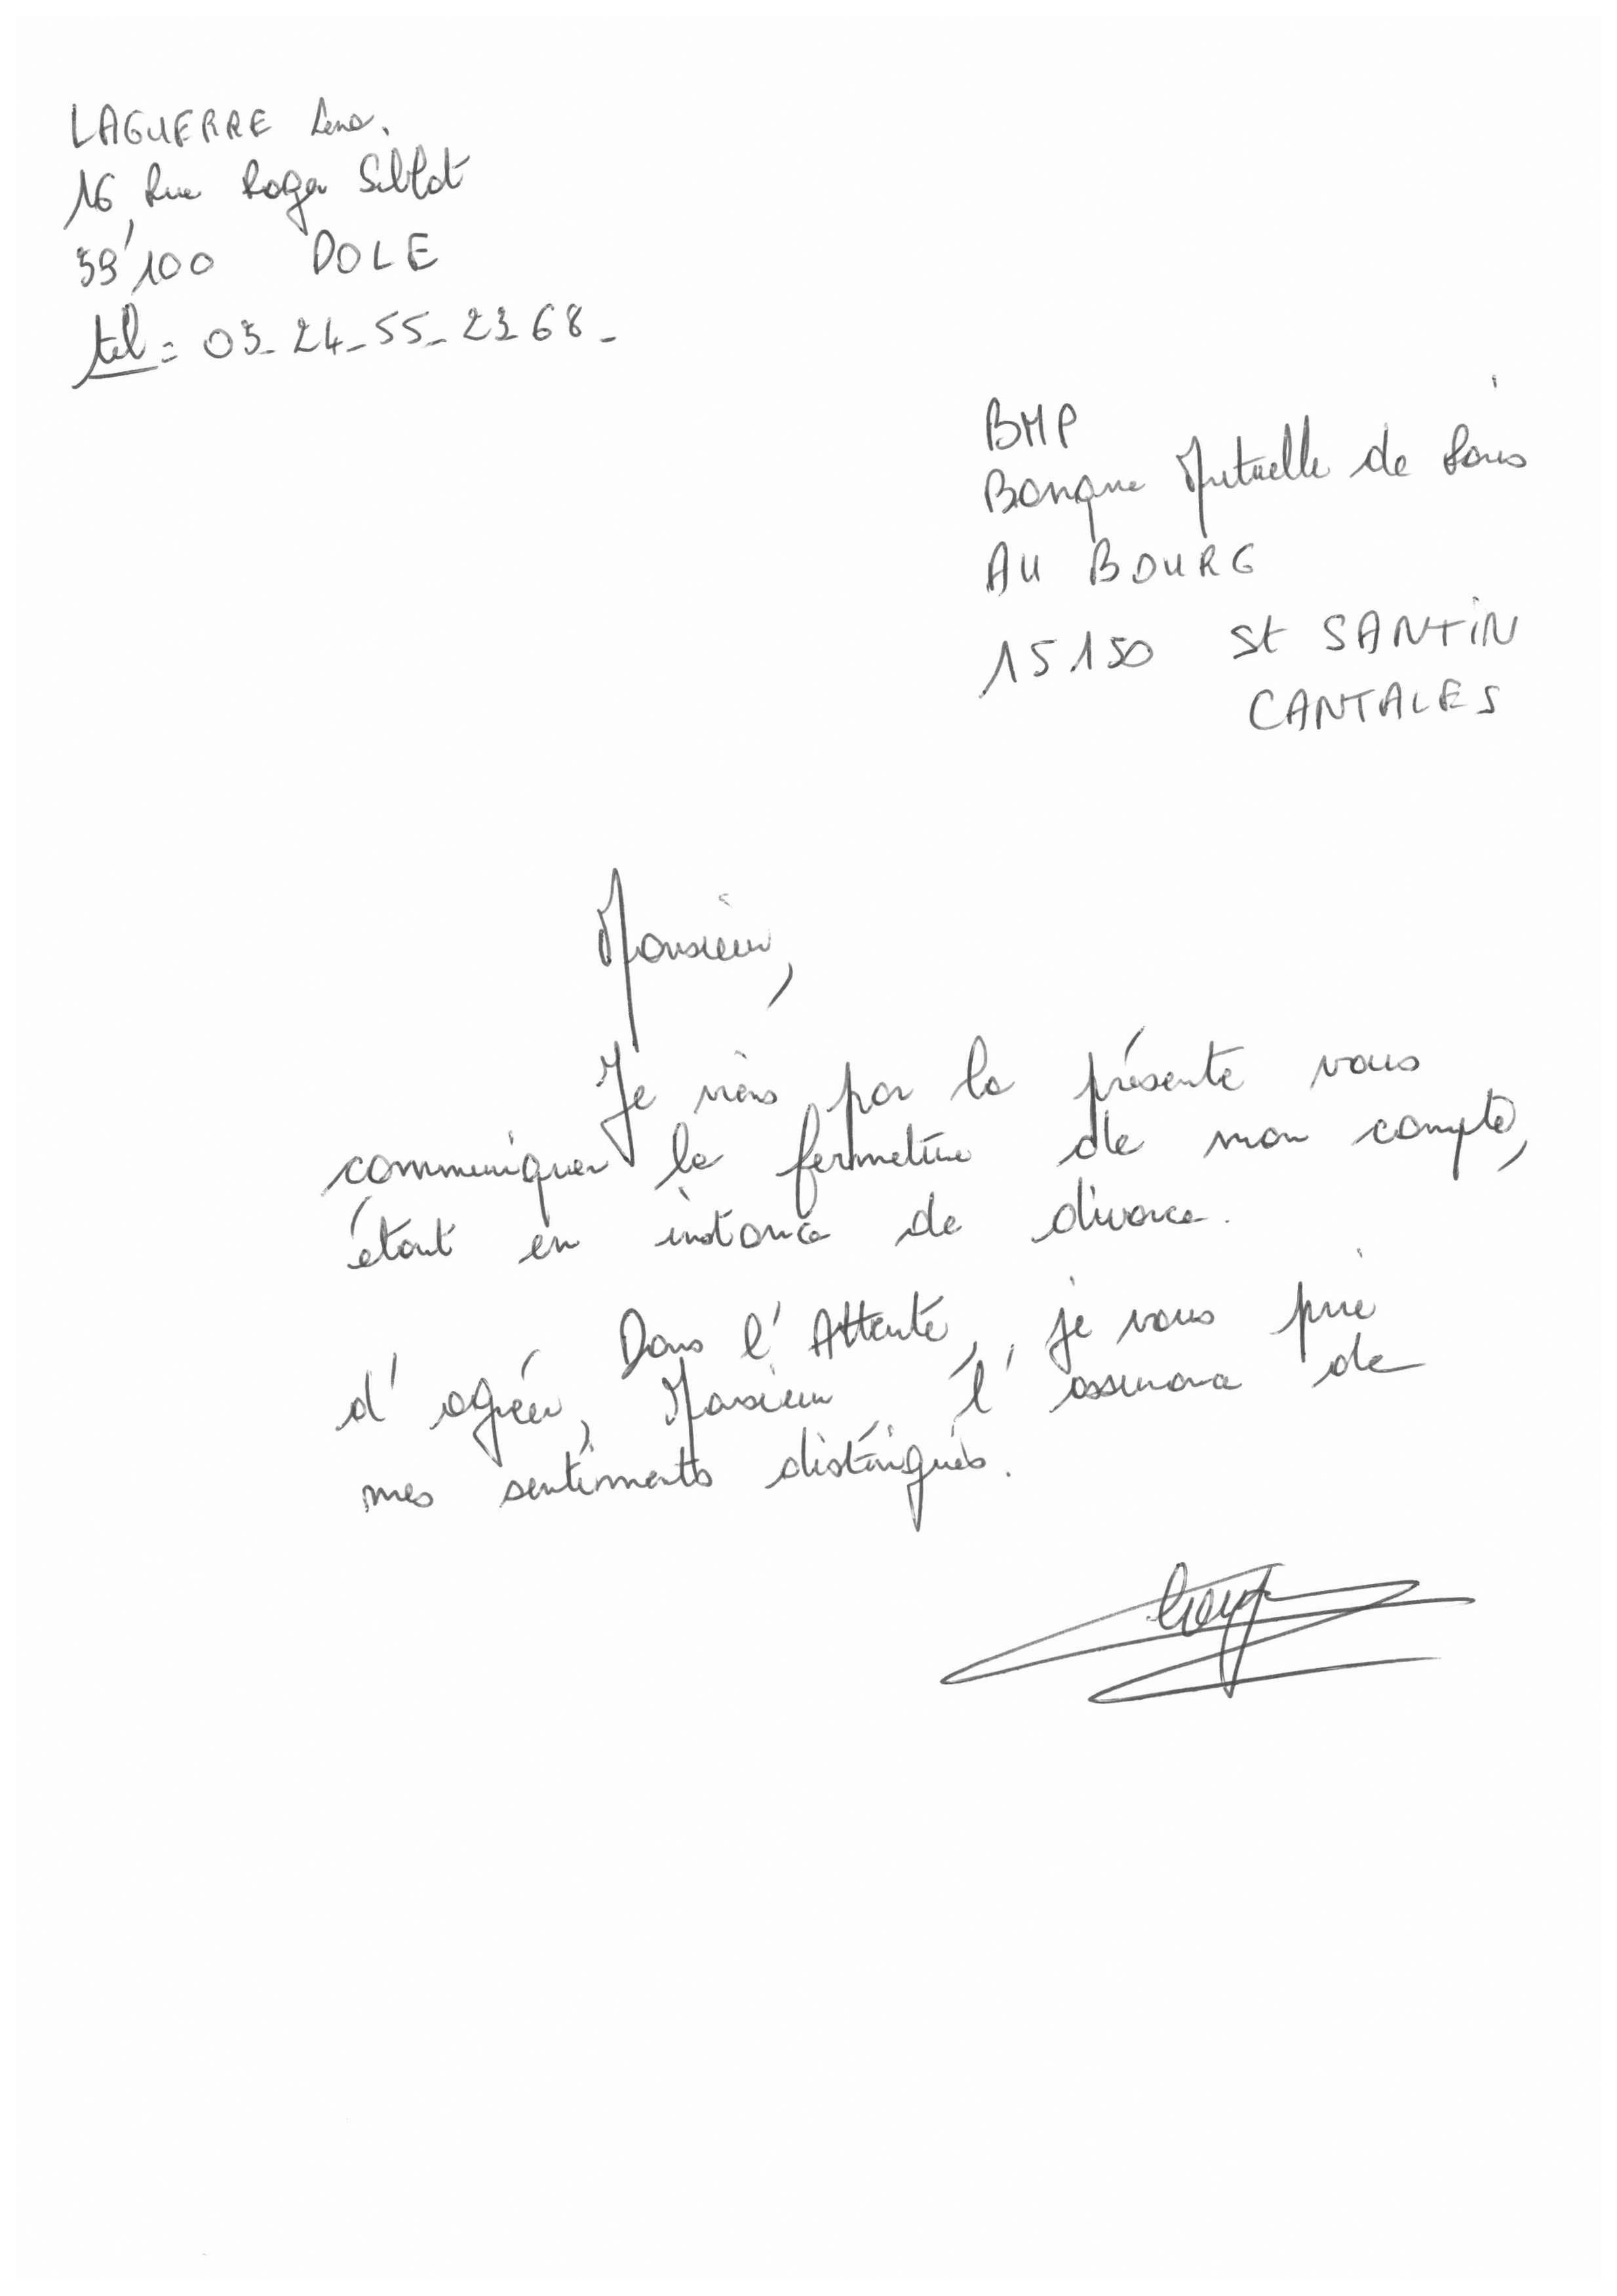 LAGUERRE Lena.
16, Rue Roger Sillot
39100 DOLE
tel = 03_24_55_23_68_
BMP
Banque Mutuelle de Paris
AU BOURG
15150 St SANTIN
CANTALES
Monsieur,
Je viens par la présente vous
communiquer la fermeture de mon compte,
étant en instance de divorce.
Dans l'Attente, je vous prie
d'agréer, Monsieur l'assurance de
mes sentiments distingués.